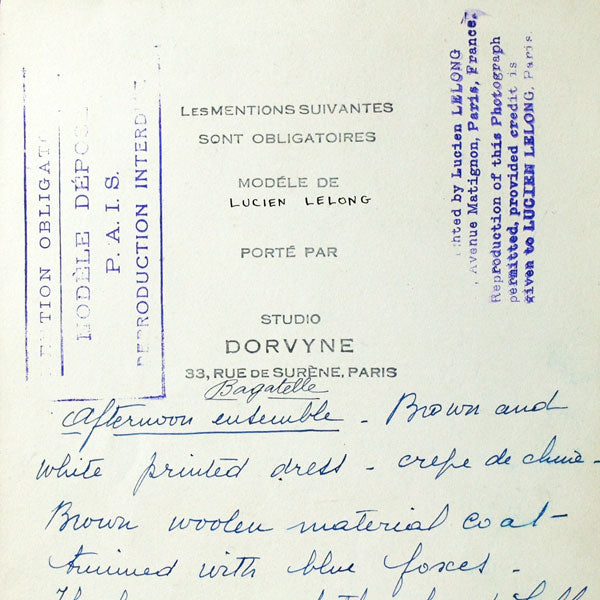 MENTION OBLIGAT
MODÈLE DÉPOSÉ
P. A. I. S.
REPRODUCTION INTERD
LES MENTIONS SUIVANTES
SONT OBLIGATOIRES
MODÉLE DE
LUCIEN LELONG
PORTÉ PAR
STUDIO
DORVYNE
33, RUE DE SURÈNE, PARIS
hted by Lucien LELONG
, Avenue Matignon, Paris, France.
Reproduction of this Photograph
permitted, provided credit is
given to LUCIEN LELONG, Paris
Bagatelle
Afternoon ensemble - Brown and
white printed dress - crepe de chine -
Brown woolen material coat -
trimmed with blue foxes -